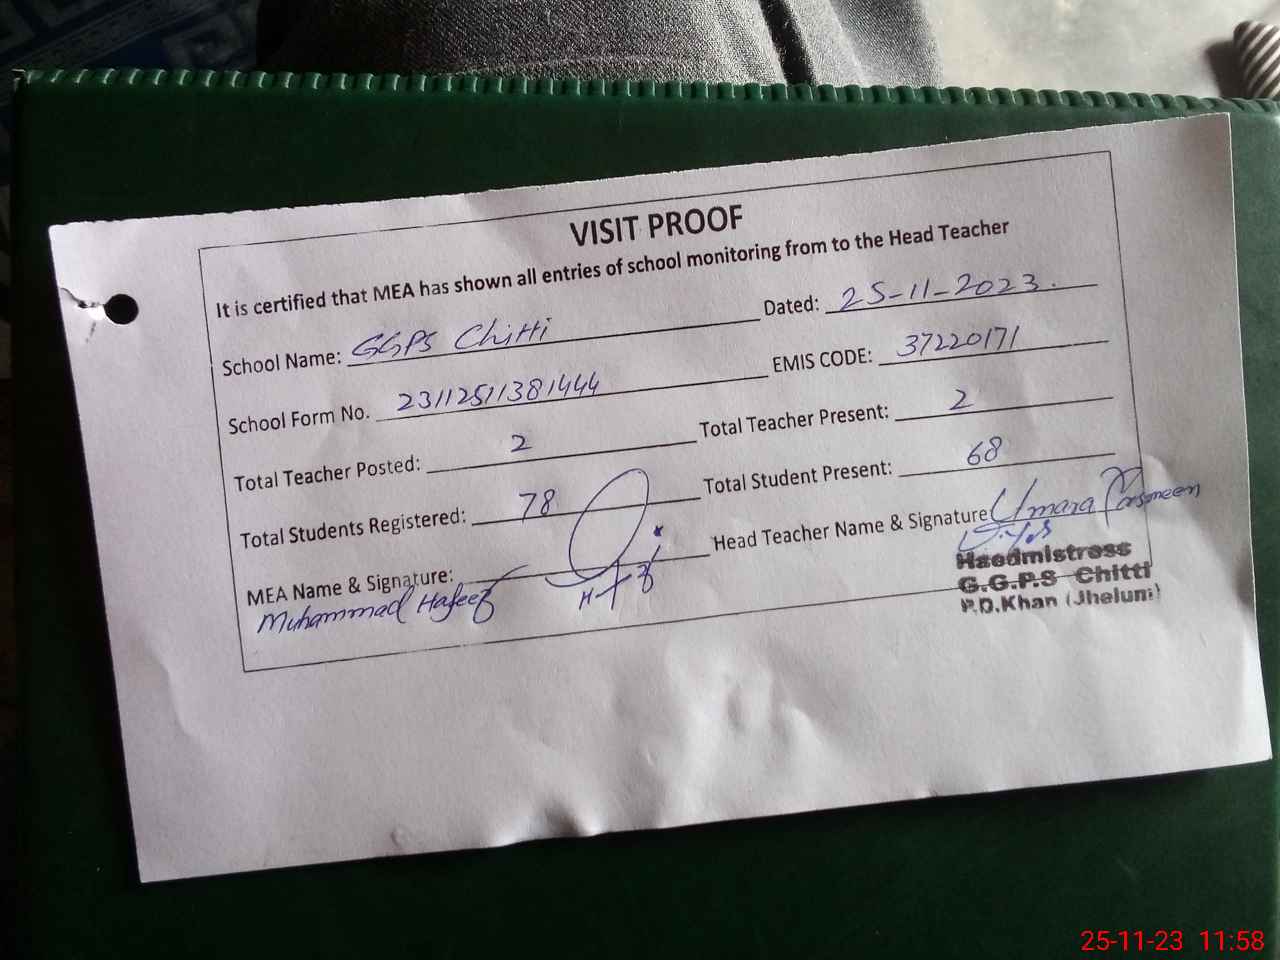 VISIT PROOF
It is certified that MEA has shown all entries of school monitoring from to the Head Teacher
School Name: GGPS Chitti Dated: 25-11-2023.
School Form No. 23112511381444 EMIS CODE: 37220171
Total Teacher Posted: 2 Total Teacher Present: 2
Total Students Registered: 78 Total Student Present: 68
MEA Name & Signature: Head Teacher Name & Signature Umara Yasmeen
Muhammad Hafeez
Haedmistress
G.G.P.S Chitti
P.D.Khan (Jhelum)
25-11-23 11:58